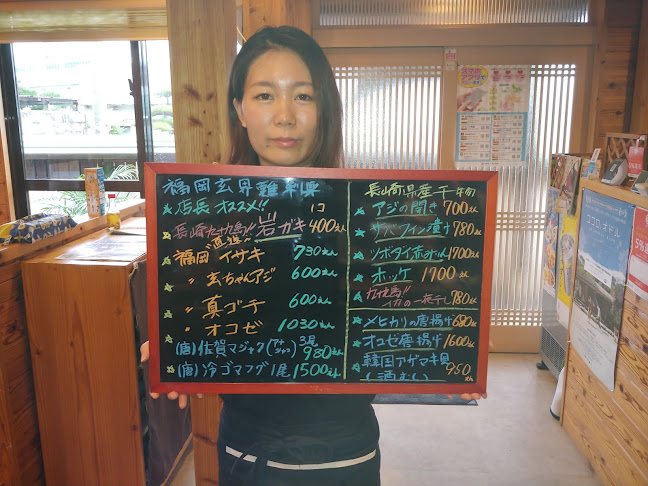 福岡玄界灘 刺身
店長オススメ!!
1コ
長崎九十九島!!岩ガキ 400えん
福岡 イサキ 730えん
〃 玄ちゃんアジ 600えん
〃 真ゴチ 600えん
〃 オコゼ 1030えん
3尾
(唐)佐賀マジャク 980えん
(唐)冷ゴマフグ1尾 1500えん
長崎県産干物
アジの開き 700えん
サバフィン漬け 780えん
ツボダイ 1700えん
ホッケ 1700えん
九十九島!!
一夜干し 780えん
メヒカリの唐揚げ 680えん
オコゼ唐揚げ 1600えん
韓国アゲマキ貝 950えん
(酒むし)
ココロオドル
5%還元